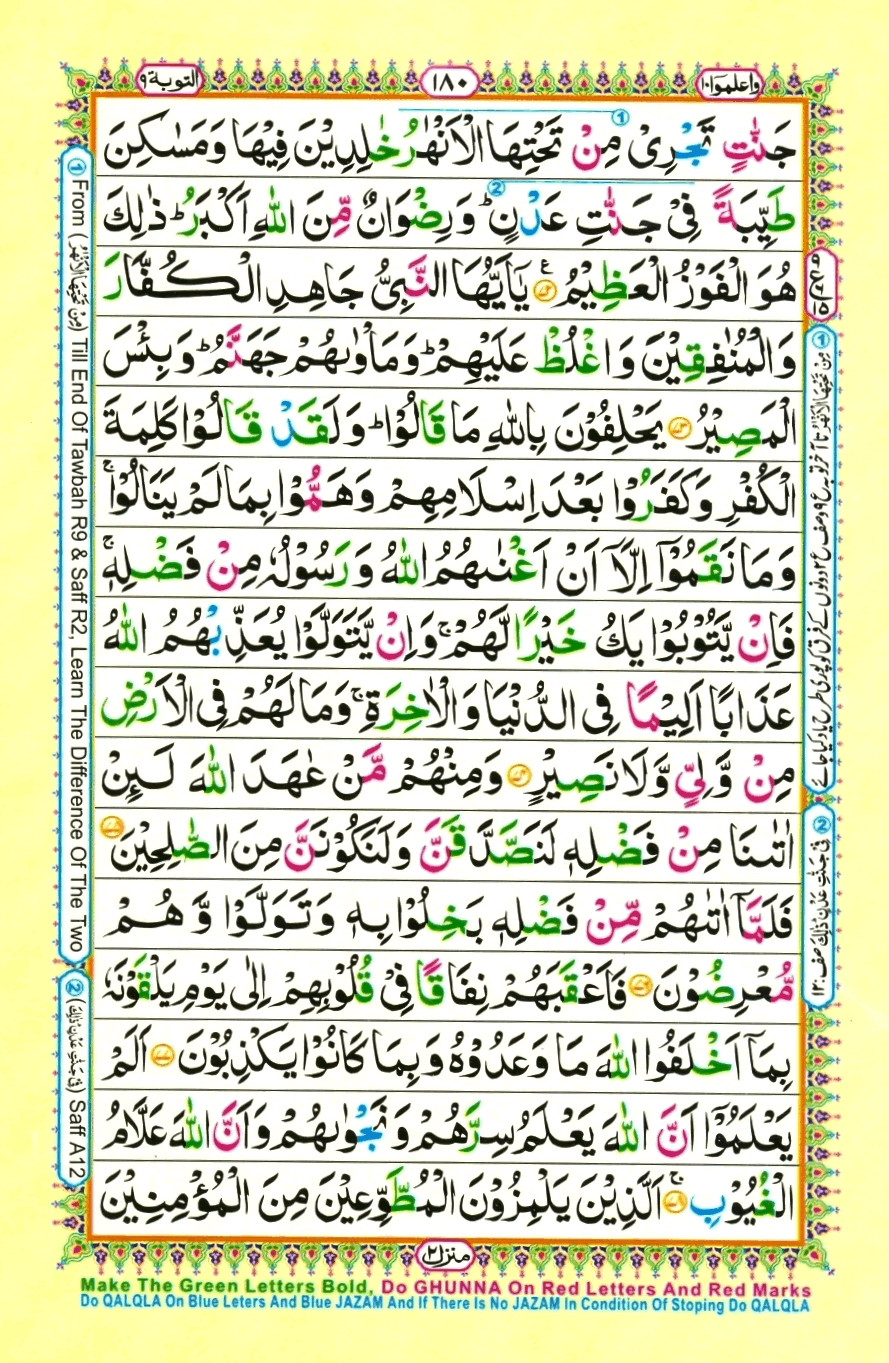 واعلموا ١٠
١٨٠
التوبة ٩
جَنّٰتٍ تَجْرِیْ مِنْ تَحْتِهَا الْاَنْهٰرُ خٰلِدِیْنَ فِیْهَا وَمَسٰكِنَ
طَیِّبَةً فِیْ جَنّٰتِ عَدْنٍ ؕ وَرِضْوَانٌ مِّنَ اللّٰهِ اَكْبَرُ ؕ ذٰلِكَ
هُوَ الْفَوْزُ الْعَظِیْمُ ۟۠ یٰۤاَیُّهَا النَّبِیُّ جَاهِدِ الْكُفَّارَ
وَالْمُنٰفِقِیْنَ وَاغْلُظْ عَلَیْهِمْ ؕ وَمَاْوٰىهُمْ جَهَنَّمُ ؕ وَبِئْسَ
الْمَصِیْرُ ۟ یَحْلِفُوْنَ بِاللّٰهِ مَا قَالُوْا ؕ وَلَقَدْ قَالُوْا كَلِمَةَ
الْكُفْرِ وَكَفَرُوْا بَعْدَ اِسْلَامِهِمْ وَهَمُّوْا بِمَا لَمْ یَنَالُوْا ۚ
وَمَا نَقَمُوْۤا اِلَّاۤ اَنْ اَغْنٰىهُمُ اللّٰهُ وَرَسُوْلُهٗ مِنْ فَضْلِهٖ ۚ
فَاِنْ یَّتُوْبُوْا یَكُ خَیْرًا لَّهُمْ ۚ وَاِنْ یَّتَوَلَّوْا یُعَذِّبْهُمُ اللّٰهُ
عَذَابًا اَلِیْمًا فِی الدُّنْیَا وَالْاٰخِرَةِ ۚ وَمَا لَهُمْ فِی الْاَرْضِ
مِنْ وَّلِیٍّ وَّلَا نَصِیْرٍ ۟ وَمِنْهُمْ مَّنْ عٰهَدَ اللّٰهَ لَىِٕنْ
اٰتٰىنَا مِنْ فَضْلِهٖ لَنَصَّدَّقَنَّ وَلَنَكُوْنَنَّ مِنَ الصّٰلِحِیْنَ ۟
فَلَمَّاۤ اٰتٰىهُمْ مِّنْ فَضْلِهٖ بَخِلُوْا بِهٖ وَتَوَلَّوْا وَّهُمْ
مُّعْرِضُوْنَ ۟ فَاَعْقَبَهُمْ نِفَاقًا فِیْ قُلُوْبِهِمْ اِلٰی یَوْمِ یَلْقَوْنَهٗ
بِمَاۤ اَخْلَفُوا اللّٰهَ مَا وَعَدُوْهُ وَبِمَا كَانُوْا یَكْذِبُوْنَ ۟ اَلَمْ
یَعْلَمُوْۤا اَنَّ اللّٰهَ یَعْلَمُ سِرَّهُمْ وَنَجْوٰىهُمْ وَاَنَّ اللّٰهَ عَلَّامُ
الْغُیُوْبِ ۟ۚ اَلَّذِیْنَ یَلْمِزُوْنَ الْمُطَّوِّعِیْنَ مِنَ الْمُؤْمِنِیْنَ
① مِنْ تَحْتِهَا الْاَنْهٰرُ تا آخر توبہ ع ۹ وصف ع ۲ دونوں کے فرق کو پوری طرح یاد کیا جائے
② فِیْ جَنّٰتِ عَدْنٍ ذٰلِكَ صف: ۱۲
① From (مِنْ تَحْتِهَا الْاَنْهٰرُ) Till End Of Tawbah R9 & Saff R2, Learn The Difference Of The Two
② (فِیْ جَنّٰتِ عَدْنٍ ذٰلِكَ) Saff A12
منزل ٢
Make The Green Letters Bold, Do GHUNNA On Red Letters And Red Marks
Do QALQLA On Blue Leters And Blue JAZAM And If There Is No JAZAM In Condition Of Stoping Do QALQLA